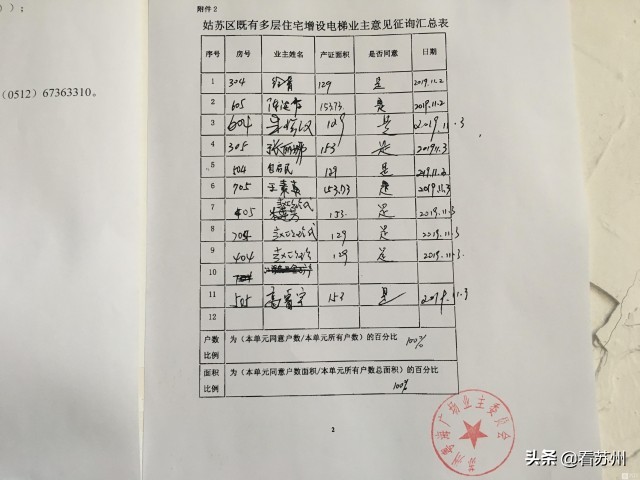 ）；
（0512）67363310。
附件2
姑苏区既有多层住宅增设电梯业主意见征询汇总表
序号 房号 业主姓名 产证面积 是否同意 日期
1 304 129 是 2019.11.2
2 605 153.73 是 2019.11.2
3 604 129 是 2019.11.3
4 305 153 是 2019.11.3
5 504 129 是 2019.11.2
6 705 王素英 153.73 是 2019.11.3
7 405 153 是 2019.11.3
8 704 129 是 2019.11.3
9 404 129 是 2019.11.3
10
11 505 153 是 2019.11.3
12
户数比例 为（本单元同意户数/本单元所有户数）的百分比 100%
面积比例 为（本单元同意户数面积/本单元所有户数总面积）的百分比 100%
广场业主委员会
2
头条 @看苏州